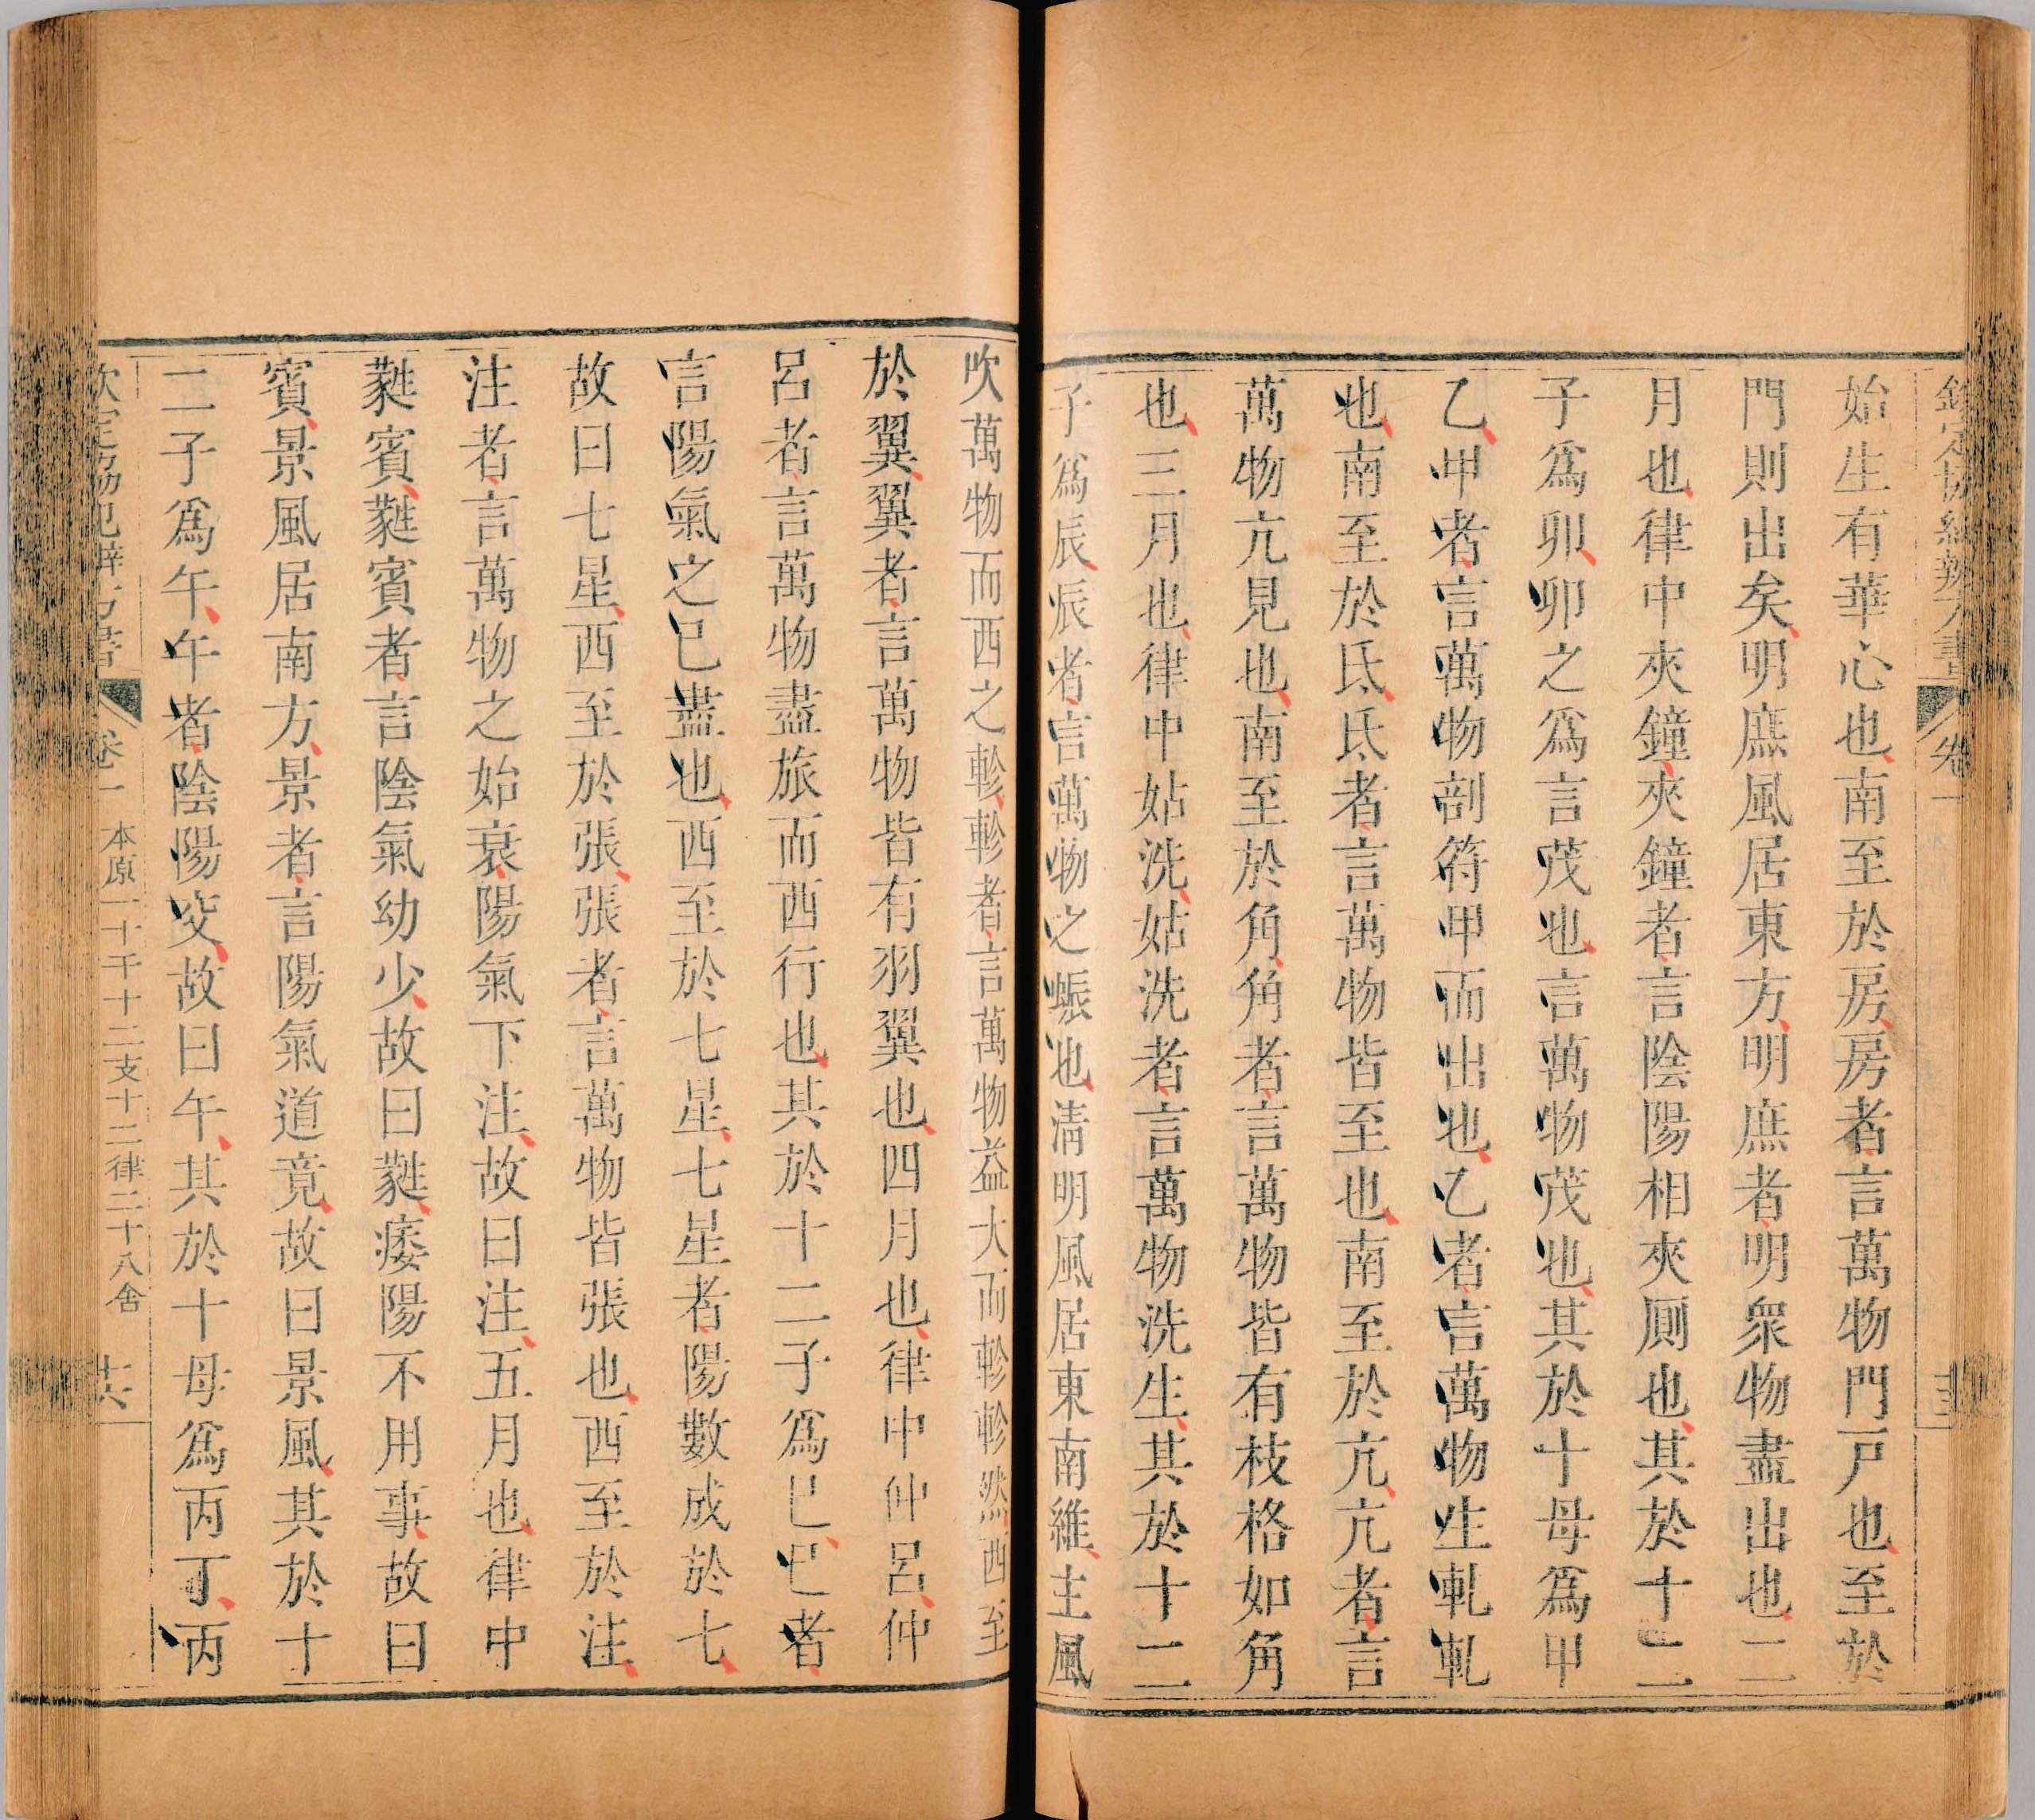 欽定協紀辨方書 卷一
始生有華心也南至於房房者言萬物門戸也至於
門則出矣明庶風居東方明庶者明衆物盡出也二
月也律中夾鐘夾鐘者言陰陽相夾厠也其於十二
子爲卯卯之爲言茂也言萬物茂也其於十母爲甲
乙甲者言萬物剖符甲而出也乙者言萬物生軋軋
也南至於氐氐者言萬物皆至也南至於亢亢者言
萬物亢見也南至於角角者言萬物皆有枝格如角
也三月也律中姑洗姑洗者言萬物洗生其於十二
子爲辰辰者言萬物之蜄也淸明風居東南維主風
吹萬物而西之軫軫者言萬物益大而軫軫然西至
於翼翼者言萬物皆有羽翼也四月也律中仲呂仲
呂者言萬物盡旅而西行也其於十二子爲巳巳者
言陽氣之已盡也西至於七星七星者陽數成於七
故曰七星西至於張張者言萬物皆張也西至於注
注者言萬物之始衰陽氣下注故曰注五月也律中
蕤賓蕤賓者言陰氣幼少故曰蕤痿陽不用事故曰
賓景風居南方景者言陽氣道竟故曰景風其於十
二子爲午午者陰陽交故曰午其於十母爲丙丁丙
欽定協紀辨方書 卷一 本原一十干十二支十二律二十八舍 十六